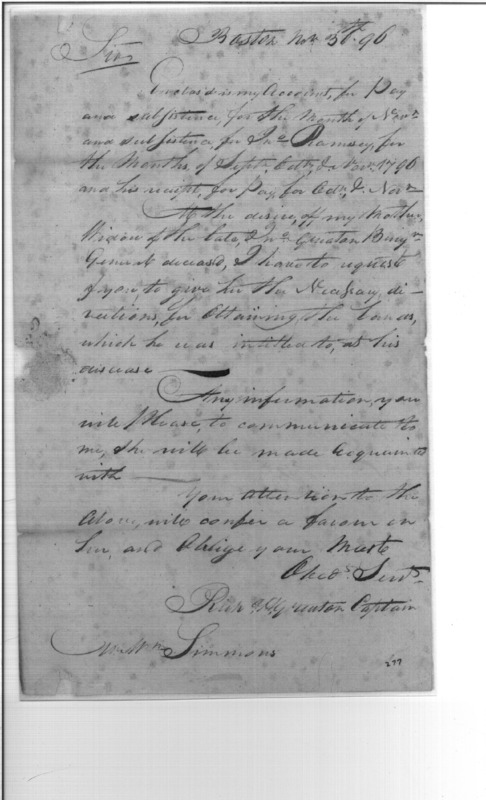 Boston Nov. 30th. 96
Sir
Enclosed is my Account, for Pay
and subsistence, for the Month of Novr
and subsistence, for Jno. Ramsey, for
the Months, of Septr. Octr. & Novr. 1796
and his receipt, for Pay, for Octr. & Novr
At the desire, of my Mother,
Widow of the late, Jno. Greaton Brigr.
General deceased, I have to request
of you, to give her the Necessary di-
rections, for Obtaining, the Lands,
which he was intitled to, at his
disease
Any information, you
will Please, to communicate to
me, she will be made Acquainted
with
Your Attention to the
Above, will confer a favour on
her, and Oblige your Most
Obedt. Servt.
Rich H Greaton Captain
Mr Wm. Simmons
277